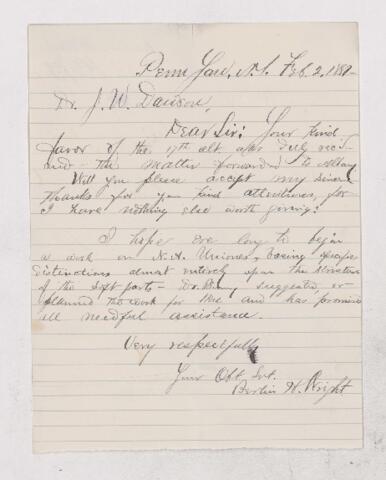 Penn Yan, N.Y. Feb. 2, 188
Dr. J. W. Dawson,
Dear Sir: Your kind
favor of the 17th ult. was duly rec'd
and the matter forwarded to Albany
Will you please accept my sincere
thanks for your kind attentions, for
I have nothing else worth giving.
I hope ere long to begin
a work on N.A. Uniones, basing specific
distinctions almost entirely upon the structure
of the soft parts. Dr. suggested or
planned the work for me and has promised
all needful assistance.
Very respectfully
Your Obt. Svt.
Berlin H. Wright